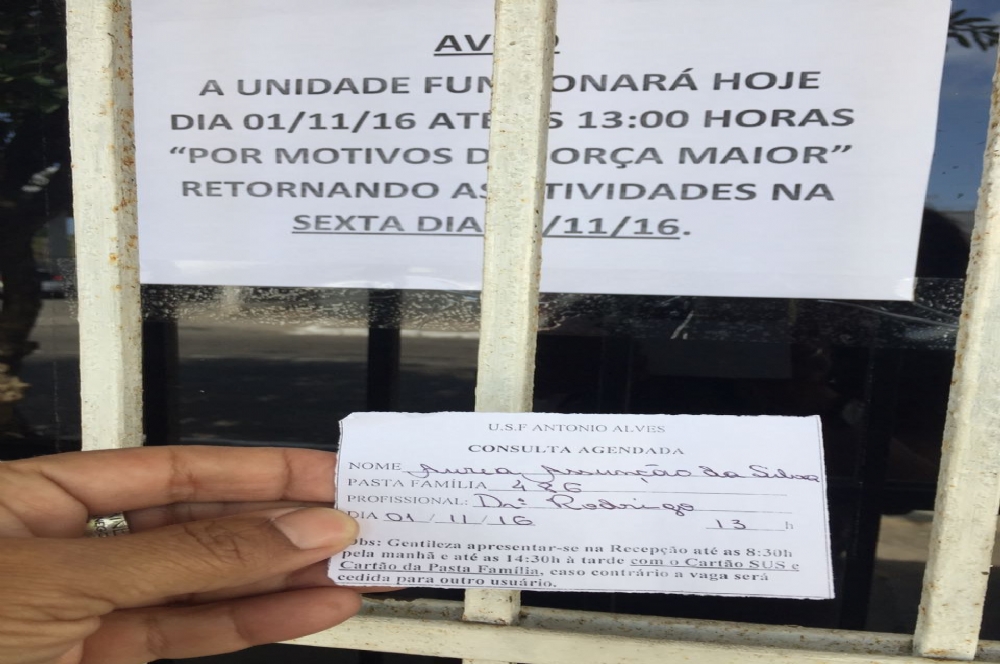 AV O
A UNIDADE FUN ONARÁ HOJE
DIA 01/11/16 ATÉ S 13:00 HORAS
“POR MOTIVOS D ORÇA MAIOR”
RETORNANDO AS TIVIDADES NA
SEXTA DIA /11/16.
U.S.F ANTONIO ALVES
CONSULTA AGENDADA
NOME Aurea Assunção da Silva
PASTA FAMÍLIA 426
PROFISSIONAL: Drº Rodrigo
DIA 01 / 11 / 16 13 h
Obs: Gentileza apresentar-se na Recepção até as 8:30h
pela manhã e até as 14:30h à tarde com o Cartão SUS e
Cartão da Pasta Família, caso contrário a vaga será
cedida para outro usuário.